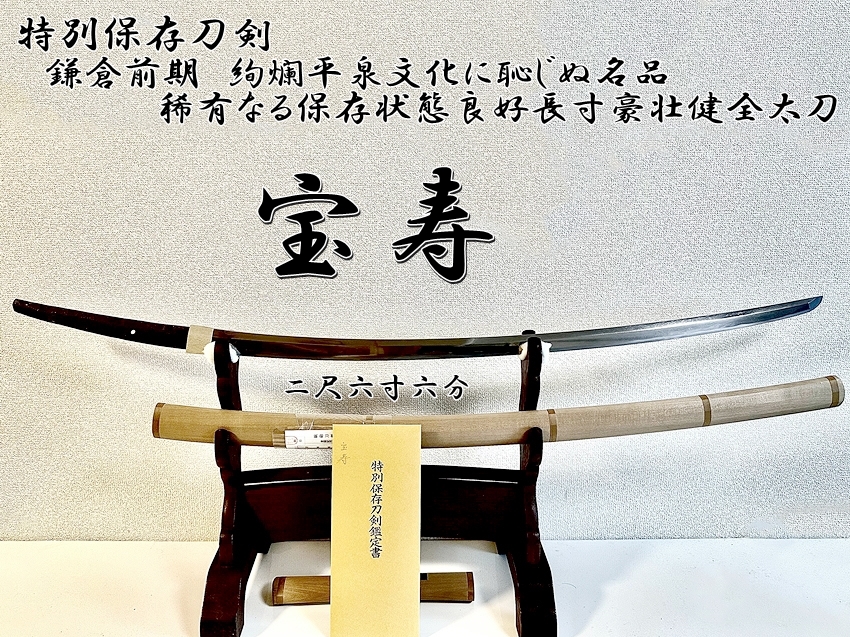 特別保存刀剣
鎌倉前期 絢爛平泉文化に恥じぬ名品
稀有なる保存状態良好長寸豪壮健全太刀
宝寿
二尺六寸六分
宝寿
特別保存刀剣鑑定書